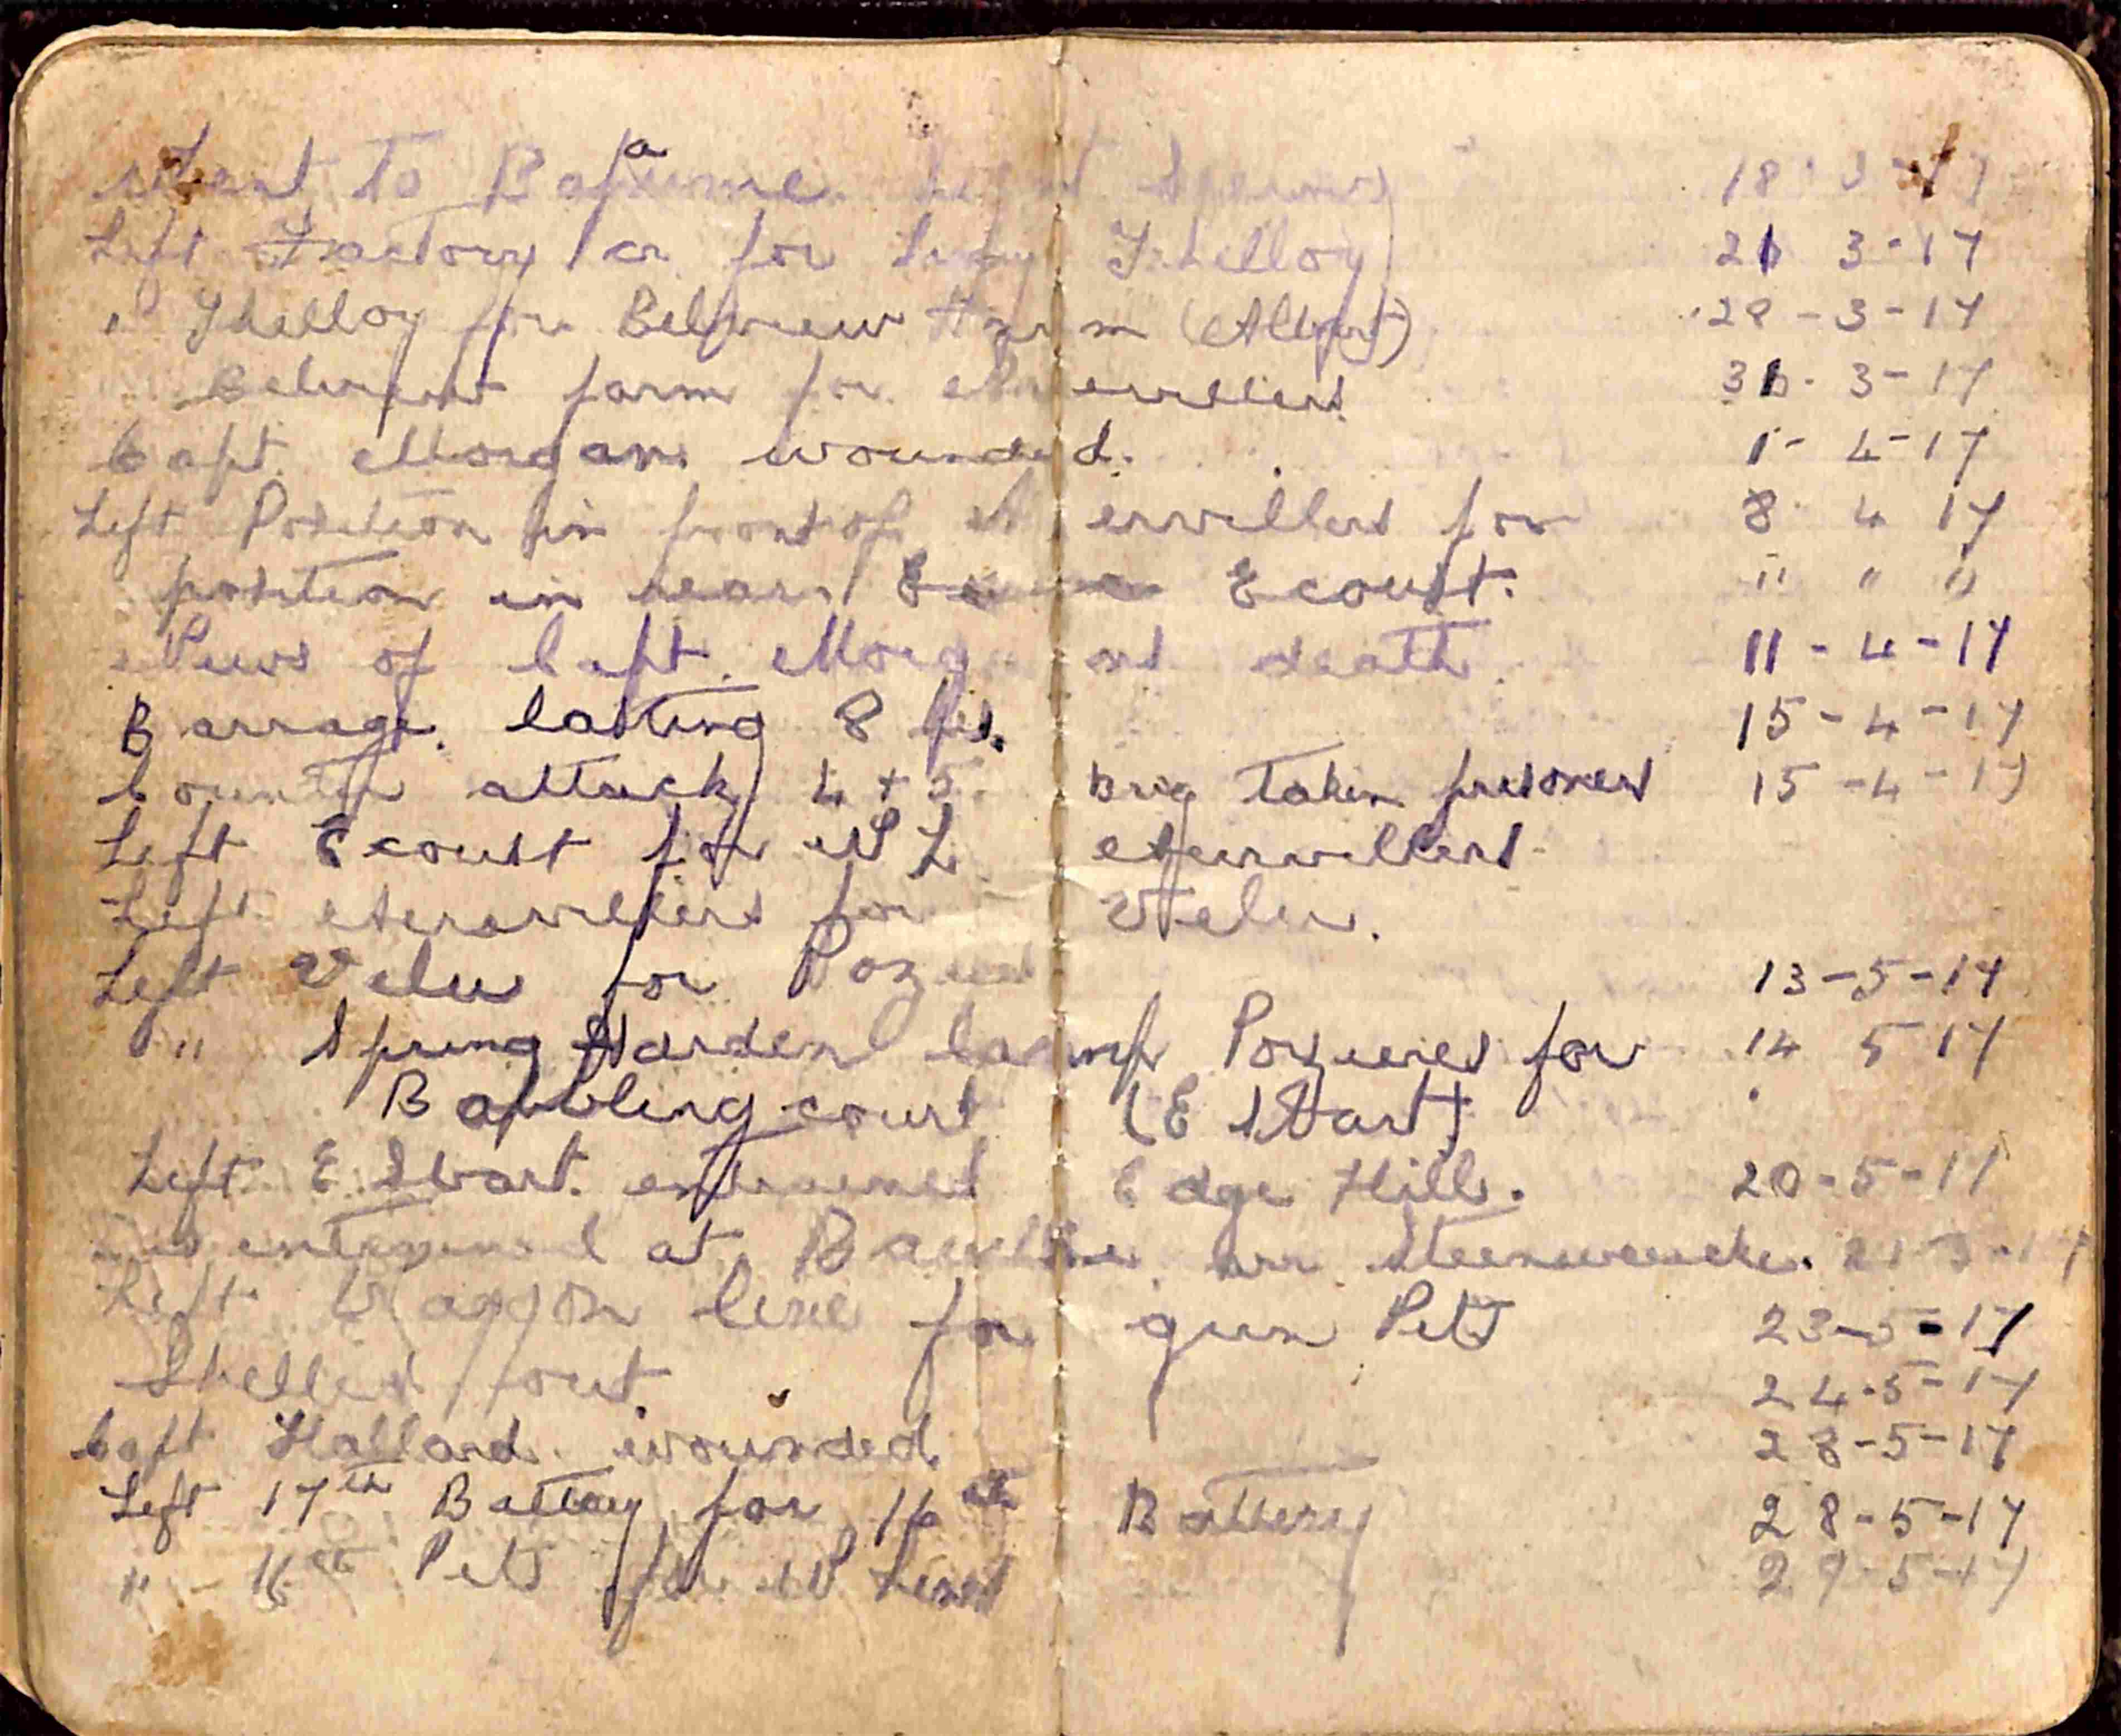 Went to Bapaume 18-3-17
Left Factory cr for Thilloy 26 3-17
" Thilloy for Belvieu Farm (Albert) 29-3-17
Belvieu farm for 31-3-17
Capt. Morgan wounded. 1-4-17
Left Position in front of ervillers for 8 4 17
position in rear Ecoust. " " "
News of Capt. Morgans death 11-4-17
Barrage. lasting 8 hrs. 15-4-17
Counter attack 4 + 5. Brig taken prisoners 15-4-17
Left Ecoust for W L
Left for Velu.
Left Velu for 13-5-17
" Spring Garden Camp Pozieres for 14 5 17
court (E Start)
Left E Start. entrained Edge Hill. 20-5-17
at arr Steenwercke.
Left Waggon line for gun Pits 23-5-17
Shelled out 24-5-17
Capt Hallard wounded 28-5-17
Left 17th Battery for 16th Battery 28-5-17
" - 16th Pits for W Lines 29-5-17